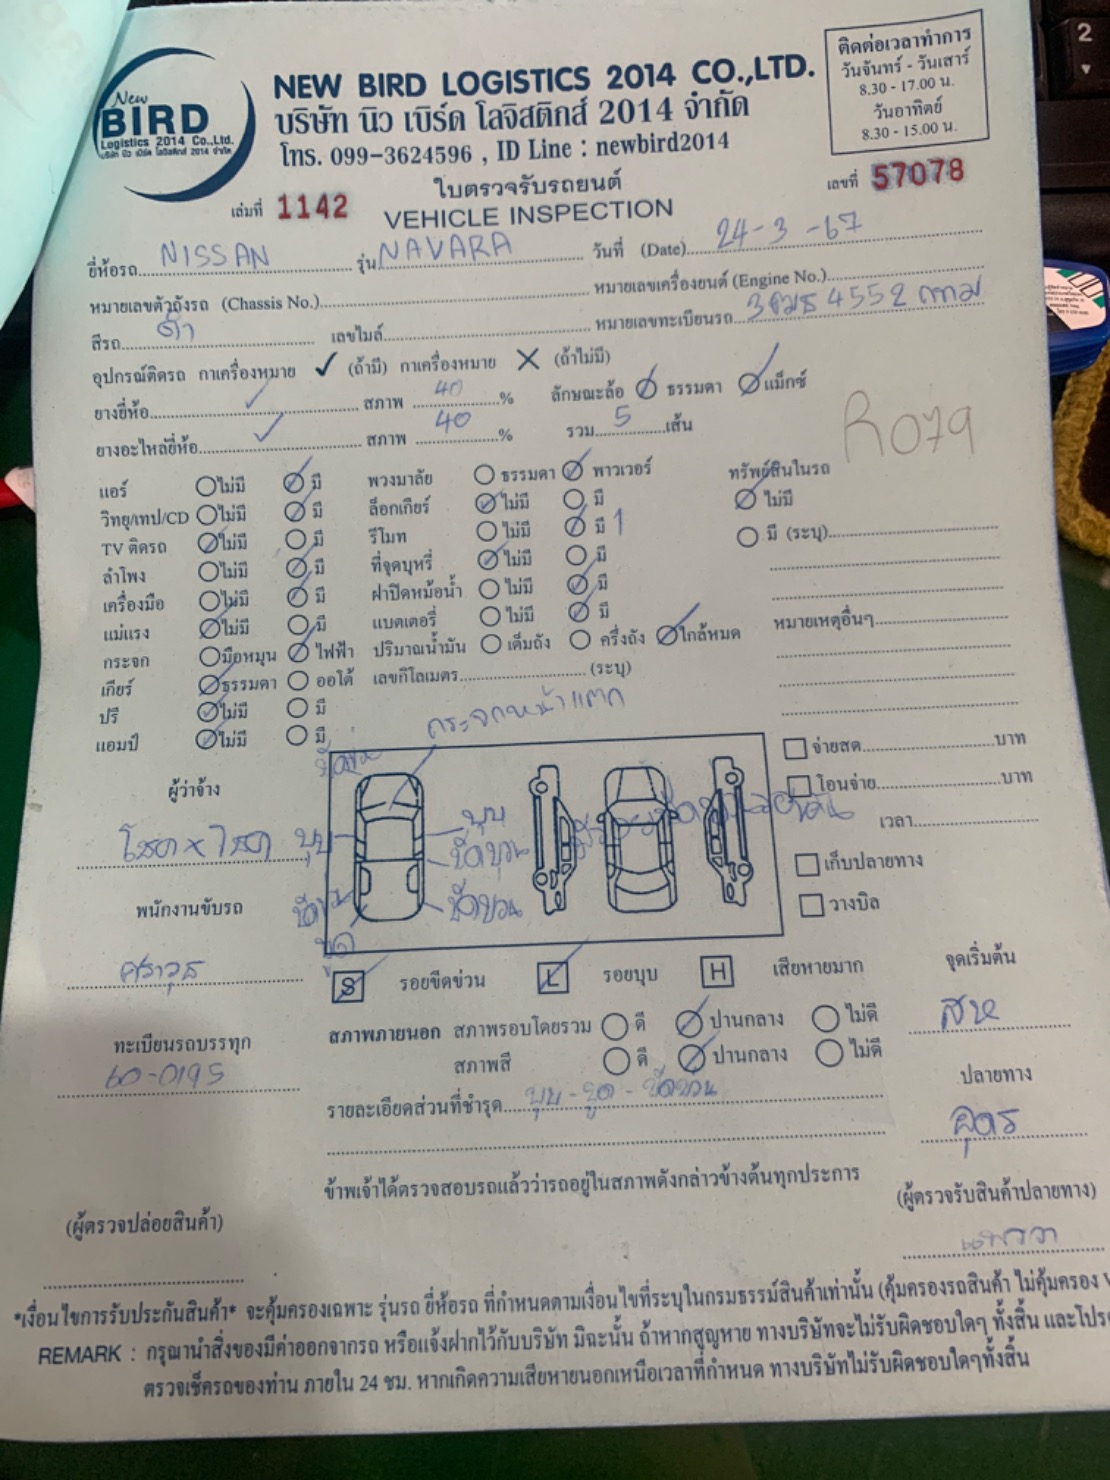 New
BIRD
Logistics 2014 Co.,Ltd.
บริษัท นิว เบิร์ด โลจิสติกส์ 2014 จำกัด
NEW BIRD LOGISTICS 2014 CO.,LTD.
บริษัท นิว เบิร์ด โลจิสติกส์ 2014 จำกัด
โทร. 099-3624596 , ID Line : newbird2014
ติดต่อเวลาทำการ
วันจันทร์ - วันเสาร์
8.30 - 17.00 น.
วันอาทิตย์
8.30 - 15.00 น.
ใบตรวจรับรถยนต์
เล่มที่ 1142 VEHICLE INSPECTION เลขที่ 57078
ยี่ห้อรถ NISSAN รุ่น NAVARA วันที่ (Date) 24-3-67
หมายเลขตัวถังรถ (Chassis No.) หมายเลขเครื่องยนต์ (Engine No.)
สีรถ ดำ เลขไมล์ หมายเลขทะเบียนรถ 4552 กทม
อุปกรณ์ติดรถ กาเครื่องหมาย ✓ (ถ้ามี) กาเครื่องหมาย ✕ (ถ้าไม่มี)
ยางยี่ห้อ ✓ สภาพ 40 % ลักษณะล้อ ธรรมดา แม็กซ์
ยางอะไหล่ยี่ห้อ ✓ สภาพ 40 % รวม 5 เส้น
R079
แอร์ ไม่มี มี พวงมาลัย ธรรมดา พาวเวอร์ ทรัพย์สินในรถ
วิทยุ/เทป/CD ไม่มี มี ล็อกเกียร์ ไม่มี มี ไม่มี
TV ติดรถ ไม่มี มี รีโมท ไม่มี มี 1 มี (ระบุ)
ลำโพง ไม่มี มี ที่จุดบุหรี่ ไม่มี มี
เครื่องมือ ไม่มี มี ฝาปิดหม้อน้ำ ไม่มี มี
แม่แรง ไม่มี มี แบตเตอรี่ ไม่มี มี หมายเหตุอื่นๆ
กระจก มือหมุน ไฟฟ้า ปริมาณน้ำมัน เต็มถัง ครึ่งถัง ใกล้หมด
เกียร์ ธรรมดา ออโต้ เลขกิโลเมตร (ระบุ)
ปรี ไม่มี มี
แอมป์ ไม่มี มี
กระจกหน้าแตก
จ่ายสด บาท
โอนจ่าย บาท
เวลา
เก็บปลายทาง
วางบิล
ผู้ว่าจ้าง
บุบ
บุบ
ขีดขวน
ขีดขวน
พนักงานขับรถ
ศราวุธ
S รอยขีดข่วน L รอยบุบ H เสียหายมาก
จุดเริ่มต้น
สห
สภาพภายนอก สภาพรอบโดยรวม ดี ปานกลาง ไม่ดี
สภาพสี ดี ปานกลาง ไม่ดี
ทะเบียนรถบรรทุก
60-0195
ปลายทาง
อุดร
รายละเอียดส่วนที่ชำรุด บุบ - ขูด - ขีดขวน
ข้าพเจ้าได้ตรวจสอบรถแล้วว่ารถอยู่ในสภาพดังกล่าวข้างต้นทุกประการ
(ผู้ตรวจปล่อยสินค้า)
(ผู้ตรวจรับสินค้าปลายทาง)
*เงื่อนไขการรับประกันสินค้า* จะคุ้มครองเฉพาะ รุ่นรถ ยี่ห้อรถ ที่กำหนดตามเงื่อนไขที่ระบุในกรมธรรม์สินค้าเท่านั้น (คุ้มครองรถสินค้า ไม่คุ้มครอง
REMARK : กรุณานำสิ่งของมีค่าออกจากรถ หรือแจ้งฝากไว้กับบริษัท มิฉะนั้น ถ้าหากสูญหาย ทางบริษัทจะไม่รับผิดชอบใดๆ ทั้งสิ้น และโปรด
ตรวจเช็ครถของท่าน ภายใน 24 ชม. หากเกิดความเสียหายนอกเหนือเวลาที่กำหนด ทางบริษัทไม่รับผิดชอบใดๆทั้งสิ้น
2